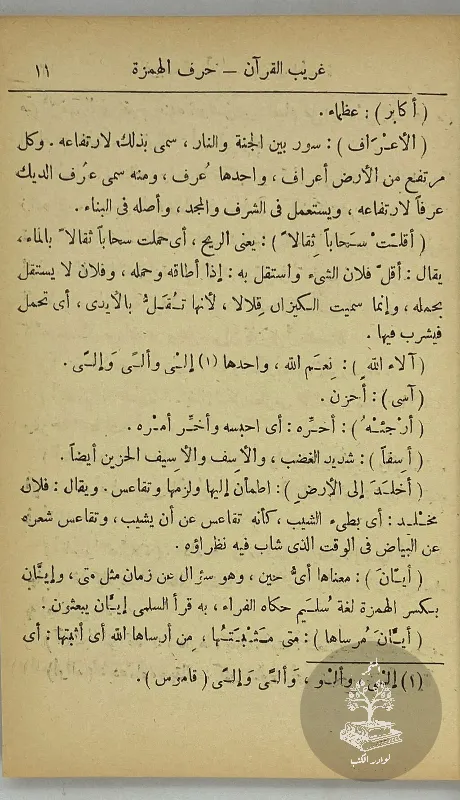 غريب القرآن — حرف الهمزة ١١
( أكابر ) : عظماء .
( الأعْرَاف ) : سور بين الجنة والنار ، سمى بذلك لارتفاعه . وكل
مرتفع من الأرض أعراف ، واحدها عُرف ، ومنه سمى عُرف الديك
عرفاً لارتفاعه ، ويستعمل فى الشرف والمجد ، وأصله فى البناء .
( أقلَّتْ سَحاباً ثِقالاً ) : يعنى الريح ، أى حملت سحاباً ثقالاً بالماء ،
يقال : أقلّ فلان الشىء واستقل به : إذا أطاقه وحمله ، وفلان لا يستقل
بحمله ، وإنما سميت الكيزان قِلالا ، لأنها تُقَلُّ بالأيدى ، أى تحمل
فيشرب فيها .
( آلاء اللهِ ) : نِعَم الله ، واحدها (١) إلْى وألًى وَإلًى .
( آسى ) : أحزن .
( أرْجِئْهُ ) : أخِّره : أى احبسه وأخِّر أمْره .
( أسِفاً ) : شديد الغضب ، والأسف والأسيف الحزين أيضاً .
( أخلَدَ إلى الأرضِ ) : اطمأن إليها ولزمها وتقاعس . ويقال : فلان
مخْلِد : أى بطىء الشيب ، كأنه تقاعس عن أن يشيب ، وتقاعس شعره
عن البياض فى الوقت الذى شاب فيه نظراؤه .
( أيَّانَ ) : معناها أىُّ حين ، وهو سؤال عن زمان مثل متى ، وإيَّان
بكسر الهمزة لغة سُلَيم حكاه الفراء ، به قرأ السلمى إيَّان يبعثون :
( أيَّانَ مُرساها ) : متى مَثْبَتُها ، مِن أرساها الله أى أثبتها : أى
(١) إلْىٌ وألْو ، وَألًى وإلًى ( قاموس ) .
لنوادر الكتب